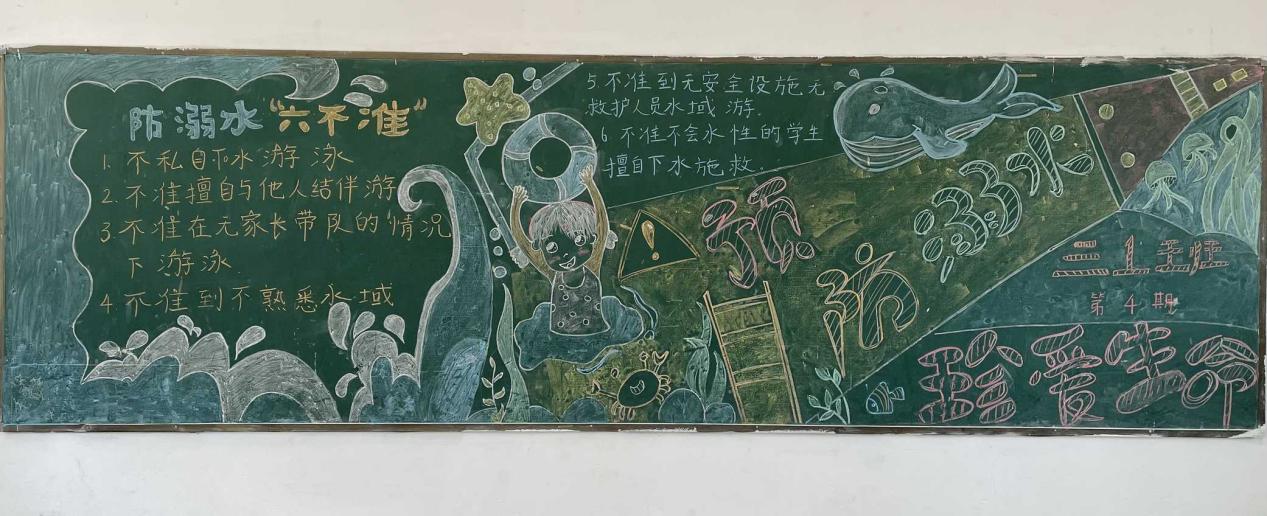 防溺水“六不准”
1. 不私自下水游泳
2. 不准擅自与他人结伴游
3. 不准在无家长带队的情况
下游泳.
4 不准到不熟悉水域
5.不准到无安全设施无
救护人员水域 游.
6 不准不会水性的学生
擅自下水施救.
预防溺水
第4期
珍爱生命